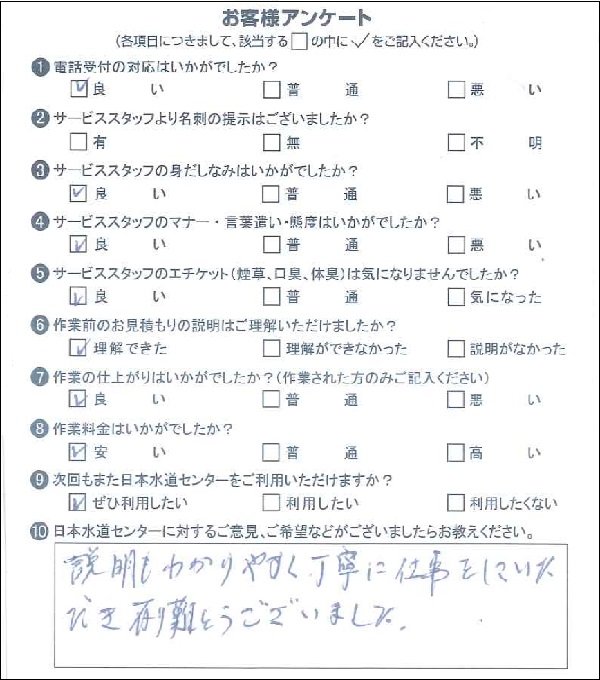 お客様アンケート
(各項目につきまして、該当する□の中に✓をご記入ください。)
❶ 電話受付の対応はいかがでしたか?
☑ 良い □ 普通 □ 悪い
❷ サービススタッフより名刺の提示はございましたか?
□ 有 □ 無 □ 不明
❸ サービススタッフの身だしなみはいかがでしたか?
☑ 良い □ 普通 □ 悪い
❹ サービススタッフのマナー・言葉遣い・態度はいかがでしたか?
☑ 良い □ 普通 □ 悪い
❺ サービススタッフのエチケット(煙草、口臭、体臭)は気になりませんでしたか?
☑ 良い □ 普通 □ 気になった
❻ 作業前のお見積もりの説明はご理解いただけましたか?
☑ 理解できた □ 理解ができなかった □ 説明がなかった
❼ 作業の仕上がりはいかがでしたか?(作業された方のみご記入ください)
☑ 良い □ 普通 □ 悪い
❽ 作業料金はいかがでしたか?
☑ 安い □ 普通 □ 高い
❾ 次回もまた日本水道センターをご利用いただけますか?
☑ ぜひ利用したい □ 利用したい □ 利用したくない
❿ 日本水道センターに対するご意見、ご希望などがございましたらお教えください。
説明もわかりやすく丁寧に仕事をしていた
だき有り難とうございました。